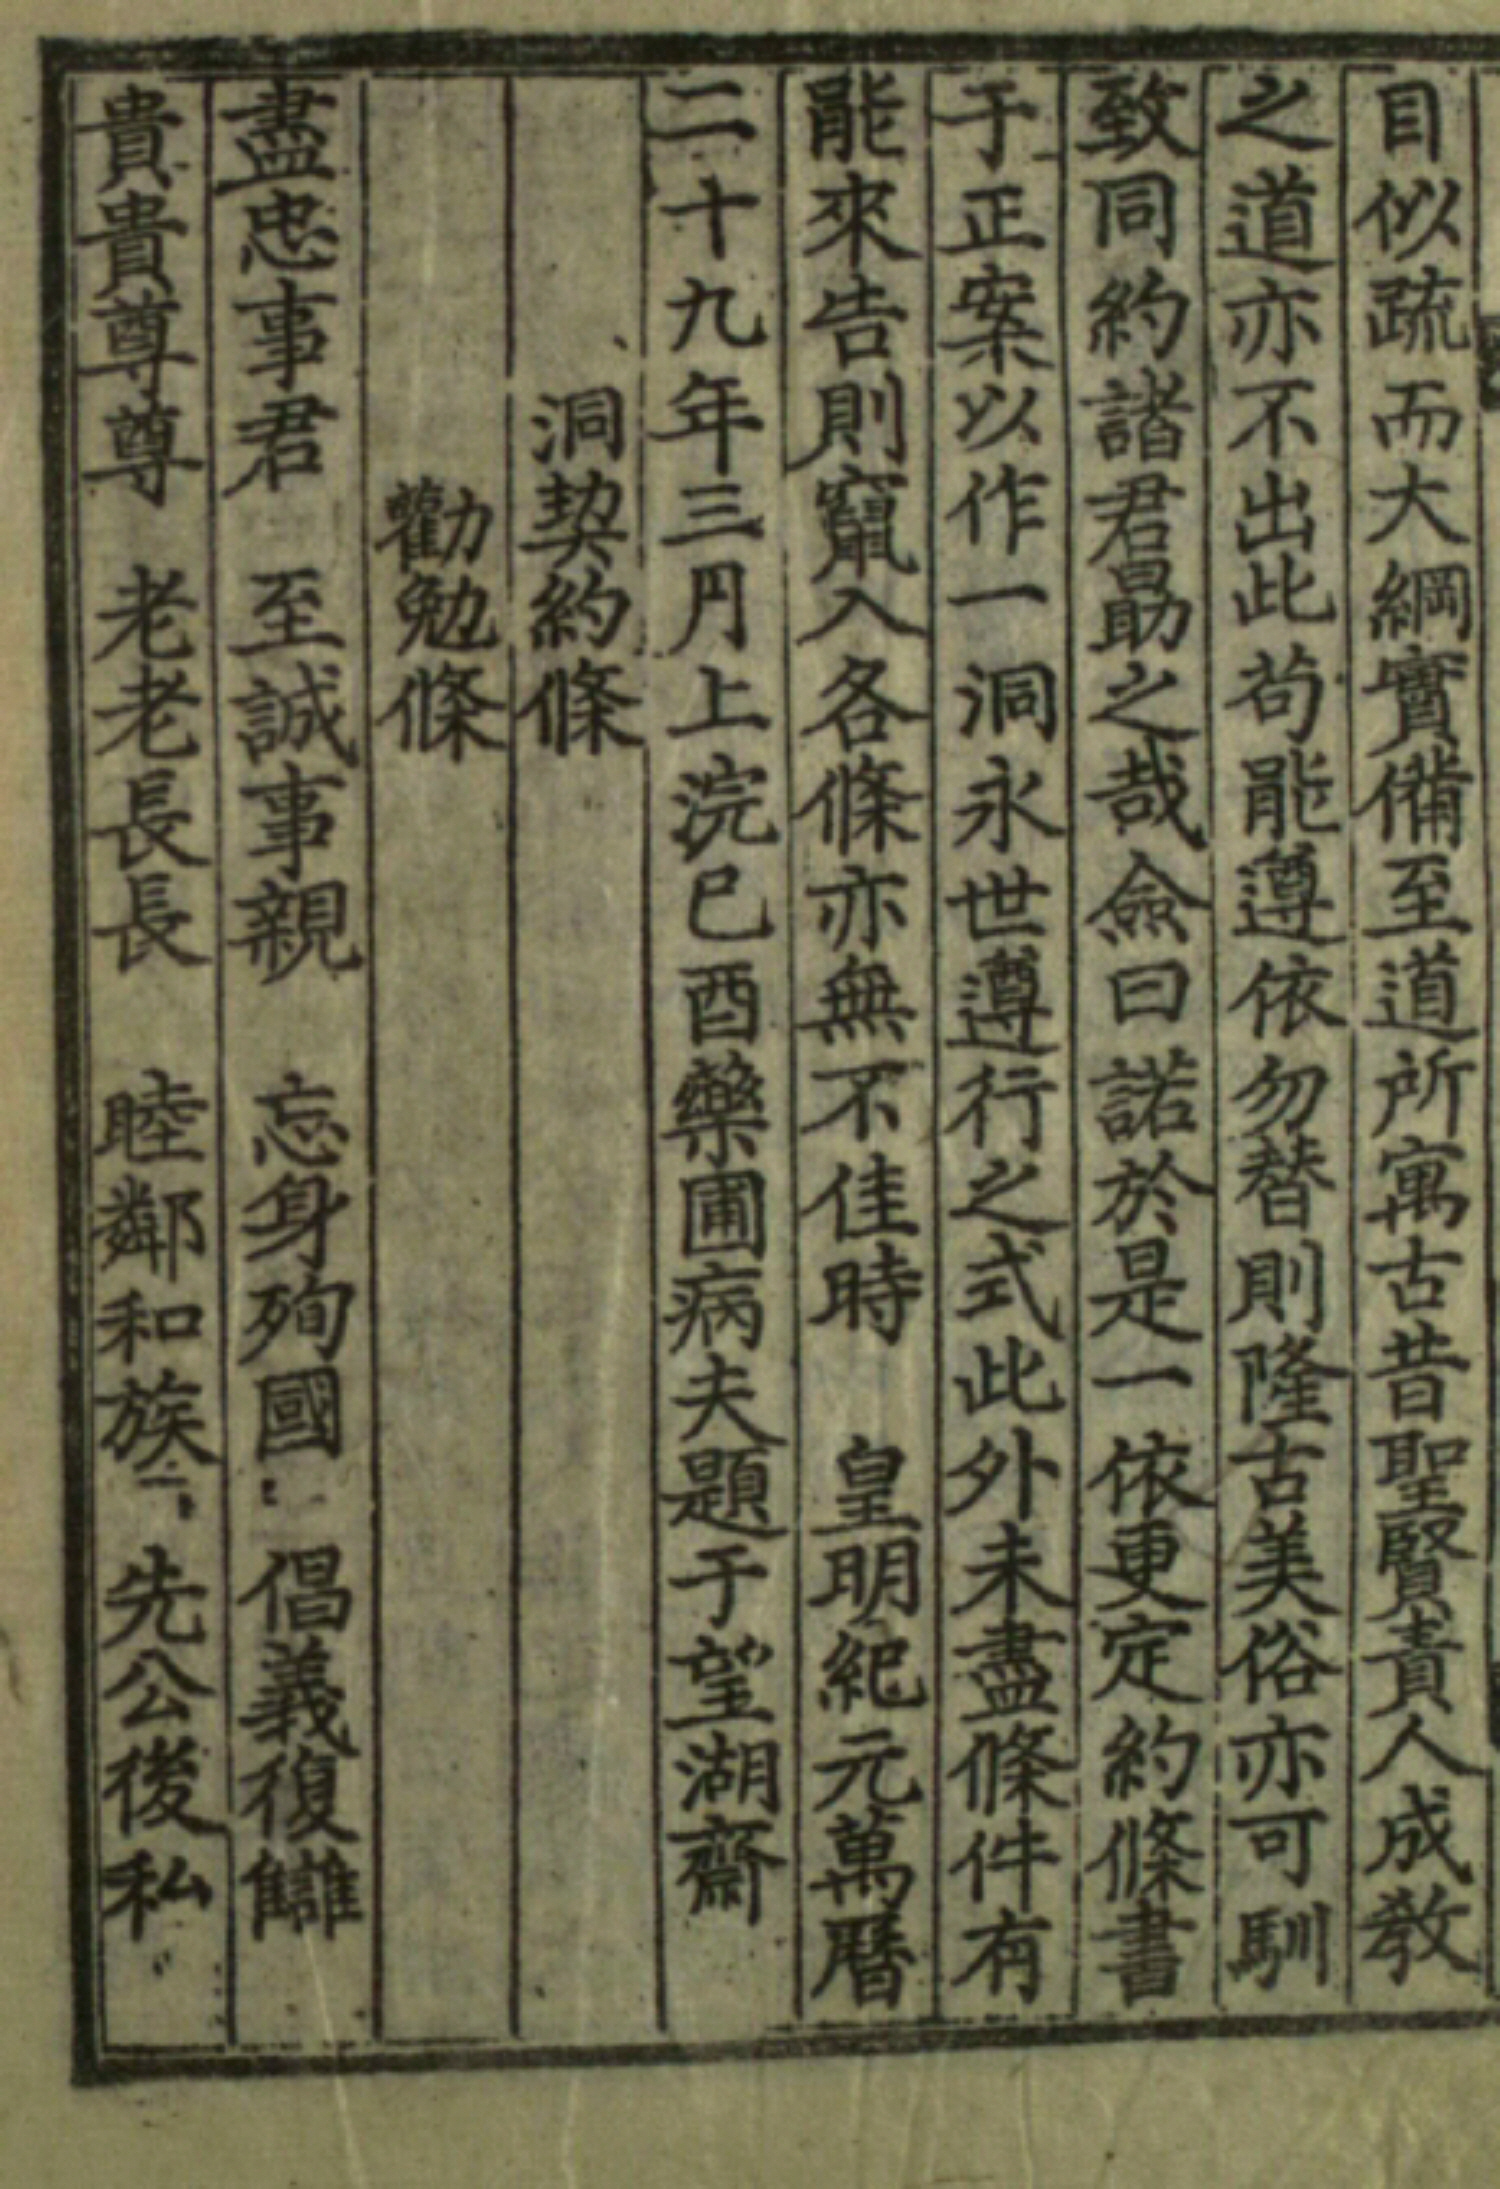 目似疏而大綱實備至道所寓古昔聖賢責人成教
之道亦不出此苟能遵依勿替則隆古美俗亦可馴
致同約諸君勗之哉僉曰諾於是一依更定約條書
于正案以作一洞永世遵行之式此外未盡條件有
能來告則竄入各條亦無不佳時　皇明紀元萬曆
二十九年三月上浣已酉藥圃病夫題于望湖齋
洞契約條
勸勉條
盡忠事君　至誠事親　忘身殉國　倡義復讎
貴貴尊尊　老老長長　睦鄰和族　先公後私